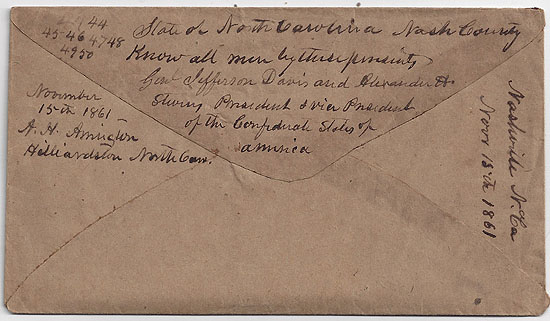 44
45-46 4748
4950
State of North Carolina Nash County
Know all men by these presents
Gen Jefferson Davis and Alexander H
Stevins President & vice President
of the Confederate States of
america
November
15th 1861
A. H. Arrington
Hilliardston North Car.
Nashville N. Ca
Nov 15th 1861